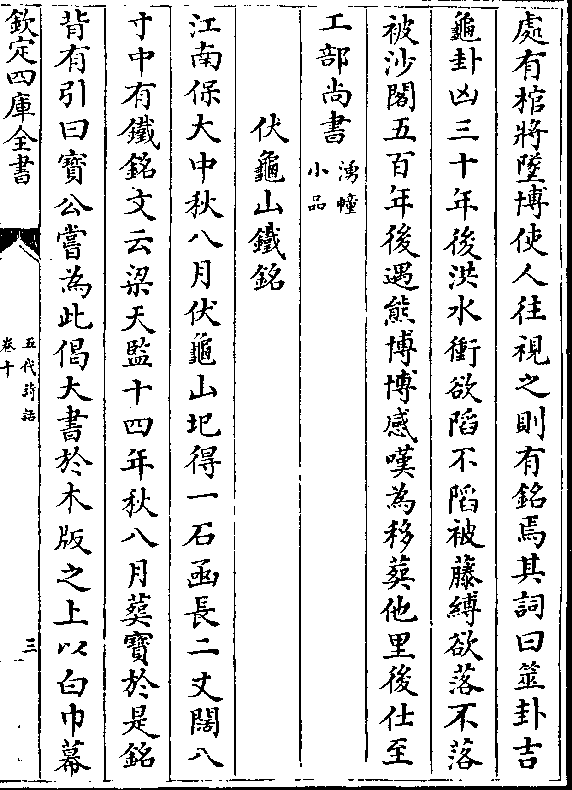 處有棺將墜博使人往視之則有銘焉其詞曰筮卦吉
龜卦凶三十年後洪水衝欲陷不陷被藤縛欲落不落
被沙閣五百年後遇熊博博感嘆為移葬他里後仕至
工部尚書湧幢小品
伏龜山鐵銘
江南保大中秋八月伏龜山圯得一石函長二丈闊八
寸中有鐵銘文云梁天監十四年秋八月葬寶於是銘
背有引曰寶公嘗為此偈大書於木版之上以白巾幕
欽定四庫全書
五代詩話
卷十
三